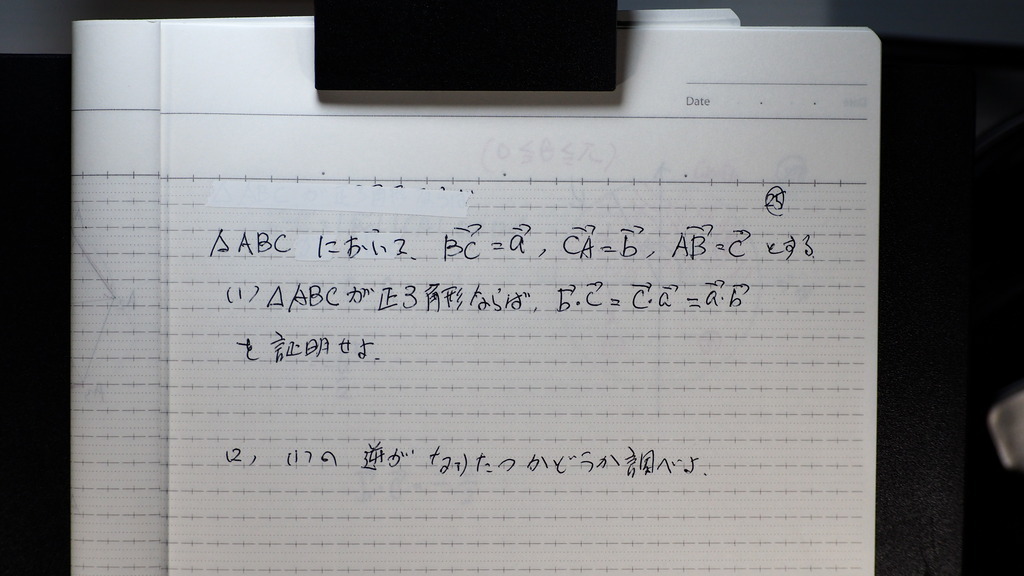 Date
㉕
△ABC において、 $\overrightarrow{BC}=\vec{a}$, $\overrightarrow{CA}=\vec{b}$, $\overrightarrow{AB}=\vec{c}$ とする
(1) △ABCが正3角形ならば、 $\vec{b}\cdot\vec{c}=\vec{c}\cdot\vec{a}=\vec{a}\cdot\vec{b}$
を証明せよ.
(2) (1)の 逆が なりたつかどうか調べよ.